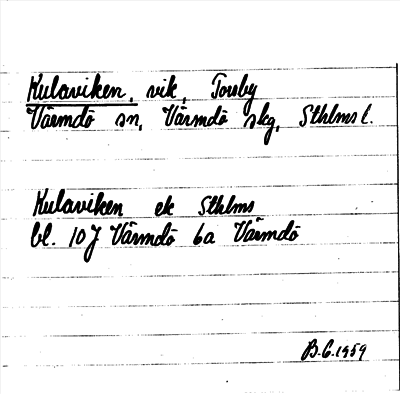 Kulaviken, vik, Torsby
Värmdö sn, Värmdö skg, Sthlms l.
Kulaviken ek Sthlms
bl. 10J Värmdö 6a Värmdö
B.G. 1959